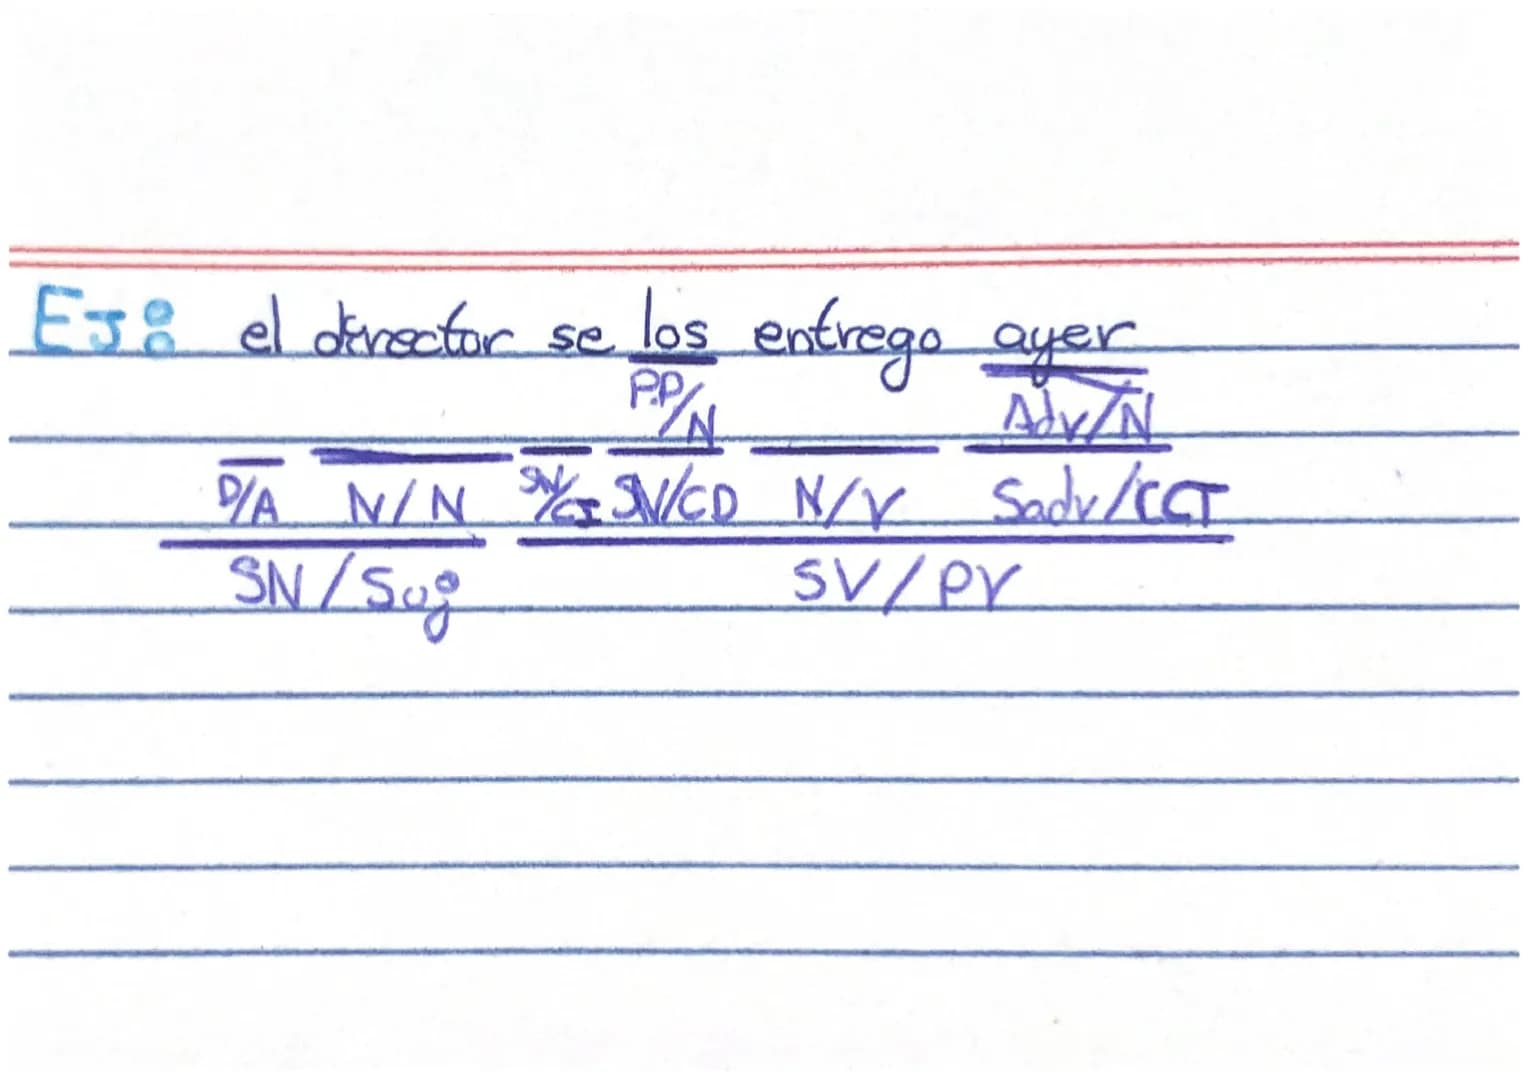 EJ: el director se los entrego ayer
P.P/N Adv/N
D/A N/N SN/CI SN/CD N/V Sadv/CCT
SN/Suj SV/PV